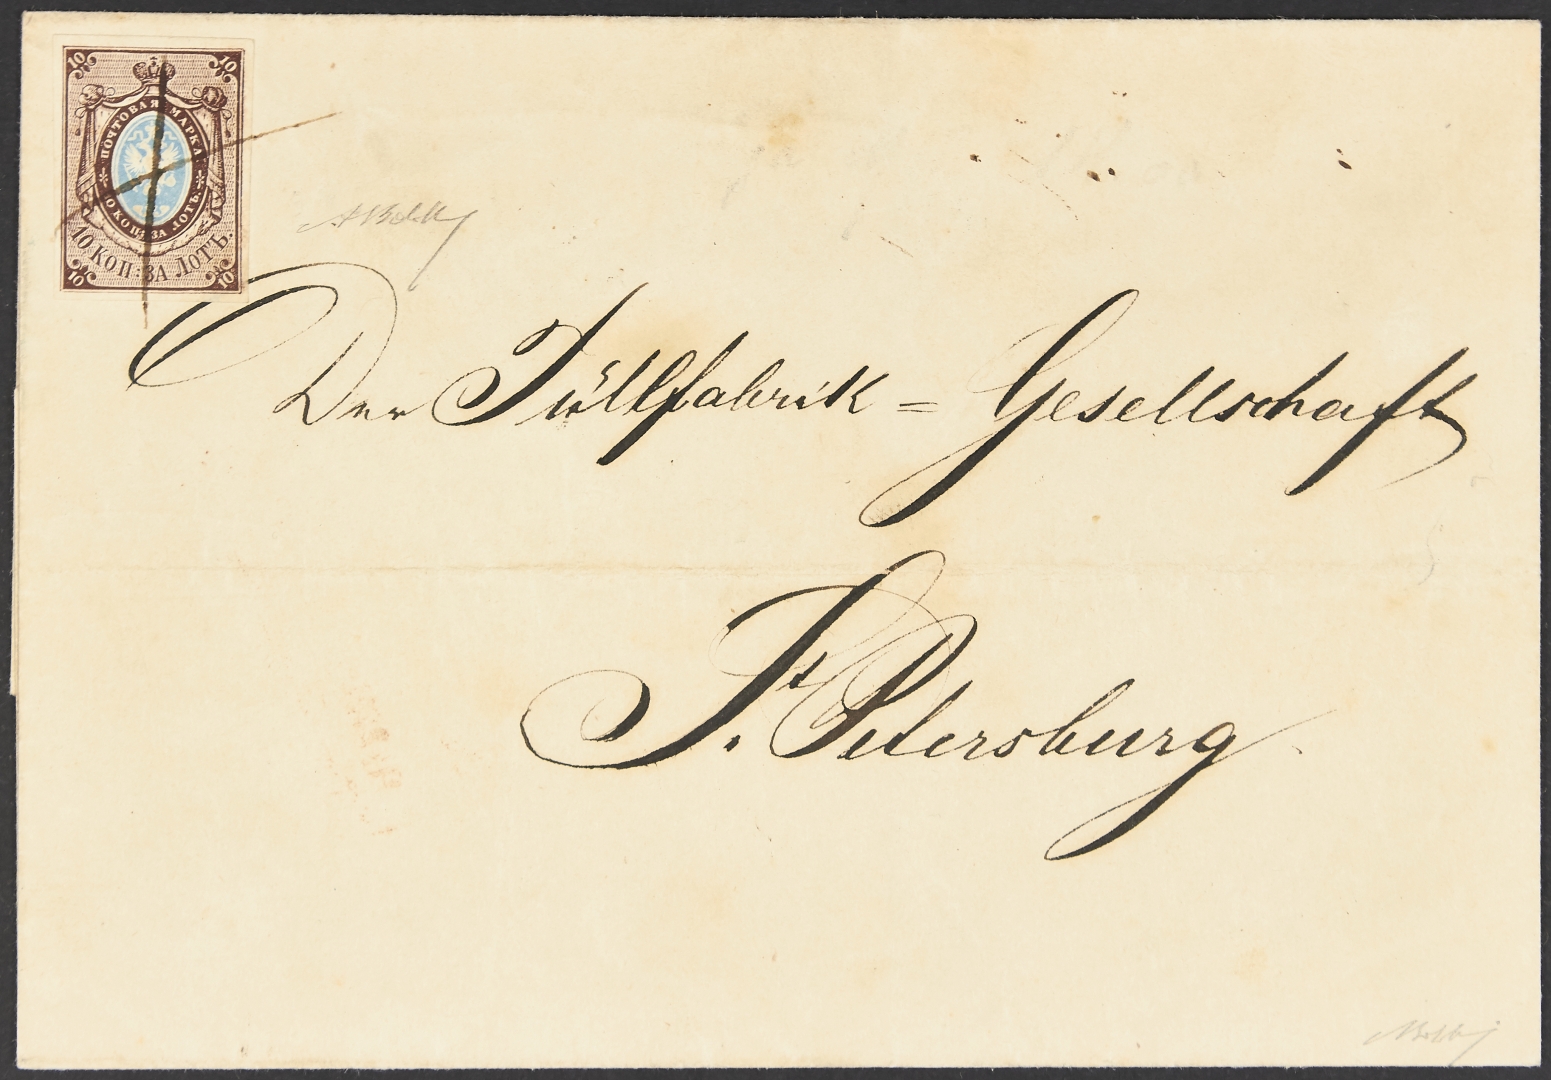 10 10
ПОЧТОВАЯ МАРКА
10 КОП. ЗА ЛОТЪ.
10 КОП: ЗА ЛОТЪ.
10 10
Der Tüllfabrik = Gesellschaft
St. Petersburg